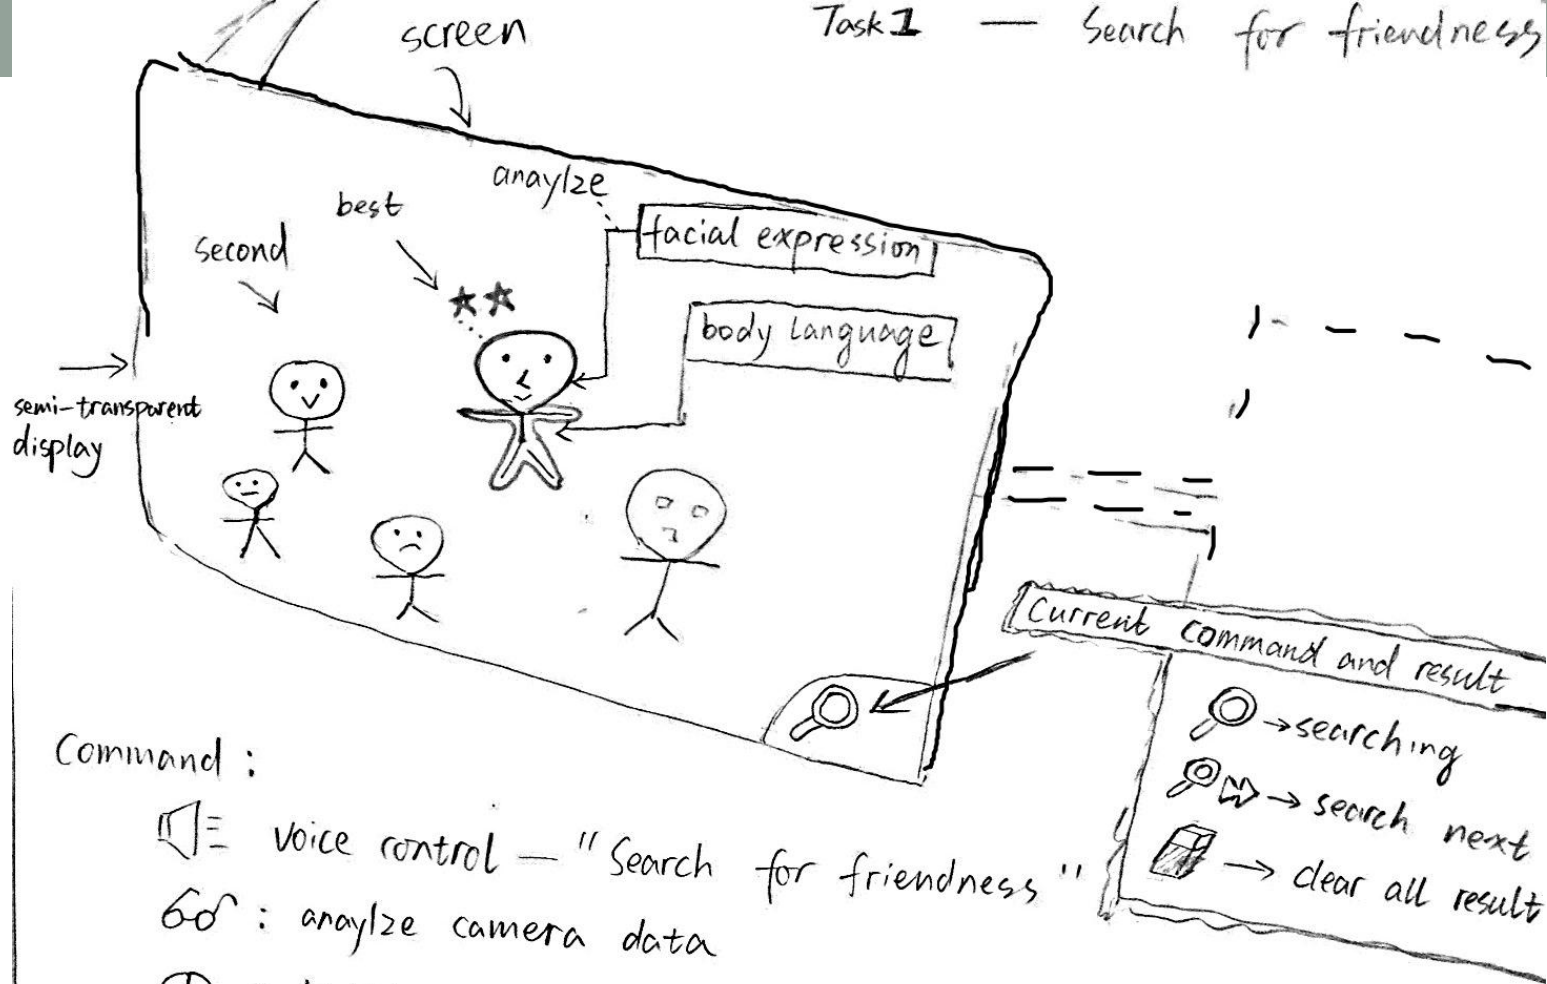 Task1 — Search for friendness
screen
anaylze
best
second
facial expression
body language
semi-transparent
display
Current command and result
→searching
→ search next
→ clear all result
Command :
voice control — "Search for friendness"
: anaylze camera data